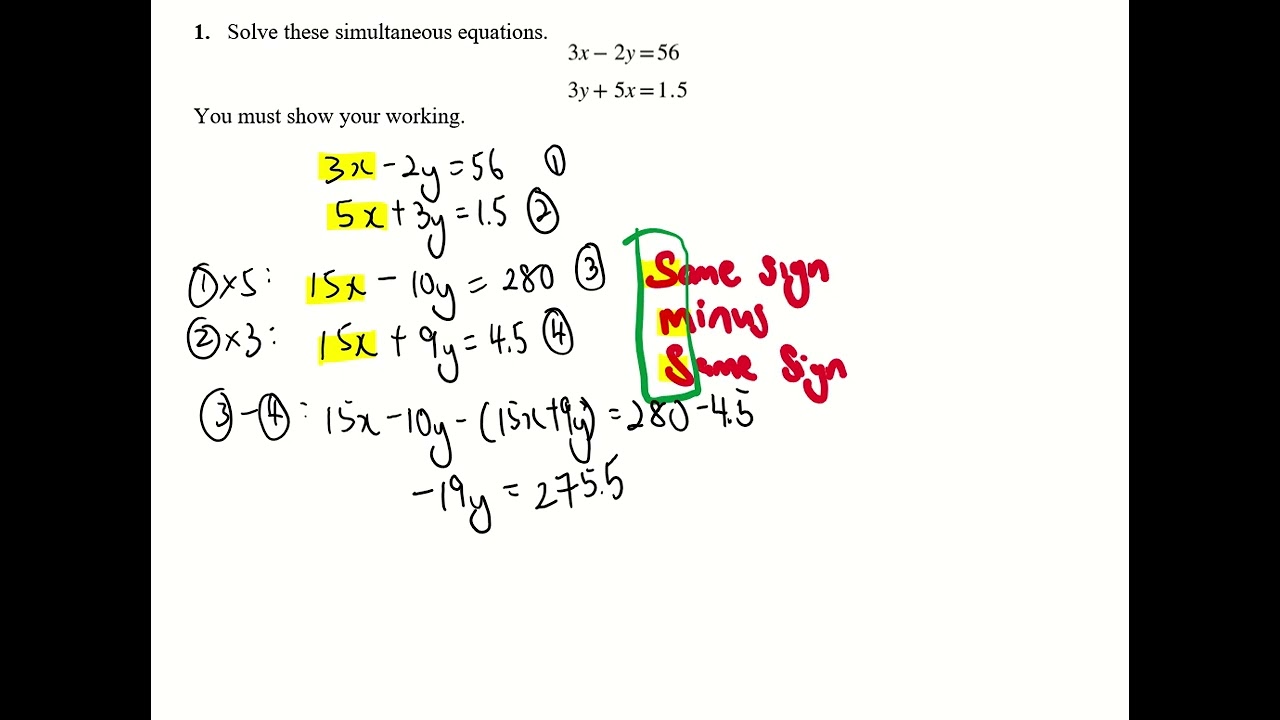 1. Solve these simultaneous equations.
3x − 2y = 56
3y + 5x = 1.5
You must show your working.
3x - 2y = 56 ①
5x + 3y = 1.5 ②
①×5: 15x - 10y = 280 ③
②×3: 15x + 9y = 4.5 ④
Same sign
minus
Same Sign
③-④: 15x - 10y - (15x + 9y) = 280 - 4.5
-19y = 275.5